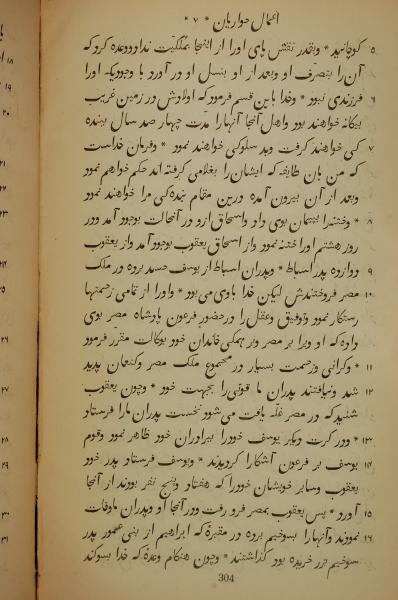 اعمال حواریان * ۷ *
۵ کوچانید * وبقدر نقش پای اورا از اینجا بملکیّت نداد ووعده کرد که
آن را بتصرّف او وبعد از او بنسل او در آورد با وجودیکه اورا
۶ فرزندی نبود * وخدا باین قسم فرمود که اولادش در زمین غریب
بیکانه خواهند بود واهل آنجا آنهارا مدّت چهار صد سال ببنده
۷ کی خواهند کرفت وبد سلوکی خواهند نمود * وفرمان خداست
که من بان طایفه که ایشان‌را بغلامی کرفته اند حکم خواهم نمود
وبعد از آن بیرون آمده درین مقام بنده‌کی مرا خواهند نمود
۸ * وختنه‌را پیمان بوی داد واسحاق ازو در آنحالت بوجود آمد ودر
روز هشتم اورا ختنه نمود واز اسحاق یعقوب بوجود آمد واز یعقوب
۹ دوازده پدر اسباط * وپدران اسباط از یوسف حسد برده در ملک
۱۰ مصر فروختندش لیکن خدا باوی می‌بود * واورا از تمامی زحمتها
رستکار نمود وتوفیق وعقل را در حضور فرعون پادشاه مصر بوی
داده که او ویرا بر مصر وبر همکی خاندان خود بوکالت مقرر فرمود
۱۱ * وکرانی وزحمت بسیار در مجموع ملک مصر وکنعان پدید
۱۲ شد ونیافتند پدران ما قوتی‌را بجهت خود * وچون یعقوب
شنید که در مصر غلّه یافت می‌شود نخست پدران مارا فرستاد
۱۳ * ودر کرت دیکر یوسف خودرا ببرادران خود ظاهر نمود وقوم
۱۴ یوسف بر فرعون آشکارا کردیدند * ویوسف فرستاد پدر خود
یعقوب وسایر خویشان خودرا که هفتاد وپنج نفر بودند از آنجا
۱۵ آورد * پس یعقوب بمصر فرو رفت ودر آنجا او وپدران ما وفات
۱۶ نمودند وآنهارا بسوخیم برده در مقبرهٔ که ابراهیم از بنی عمور پدر
سوخیم بزر خریده بود کذاشتند * وچون هنکام وعدهٔ که خدا بسوکند
304